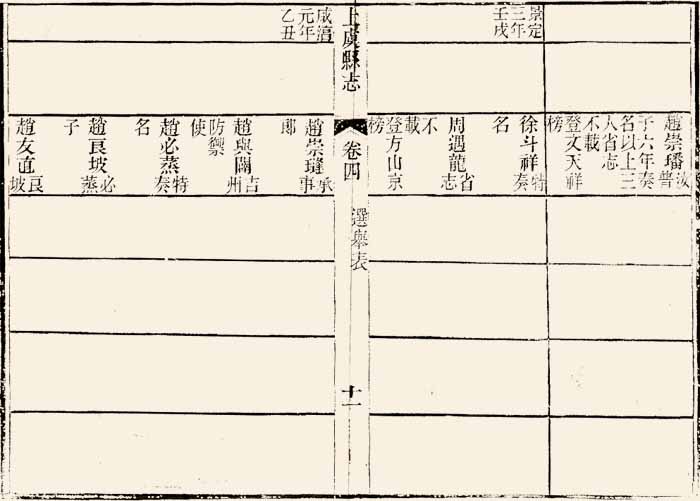 景定
三年
壬戌
趙崇璠汝普
子六年奏
名以上三
人省志
不載
登文天祥
榜
徐斗祥特奏
名
周遇龍省志
不
載
登方山京
榜
上虞縣志
卷四
選舉表
十一
咸淳
元年
乙丑
趙崇𤩽承事
郎
趙與闓吉州
防禦
使
趙必蒸特奏
名
趙良坡必蒸
子
趙友直良坡